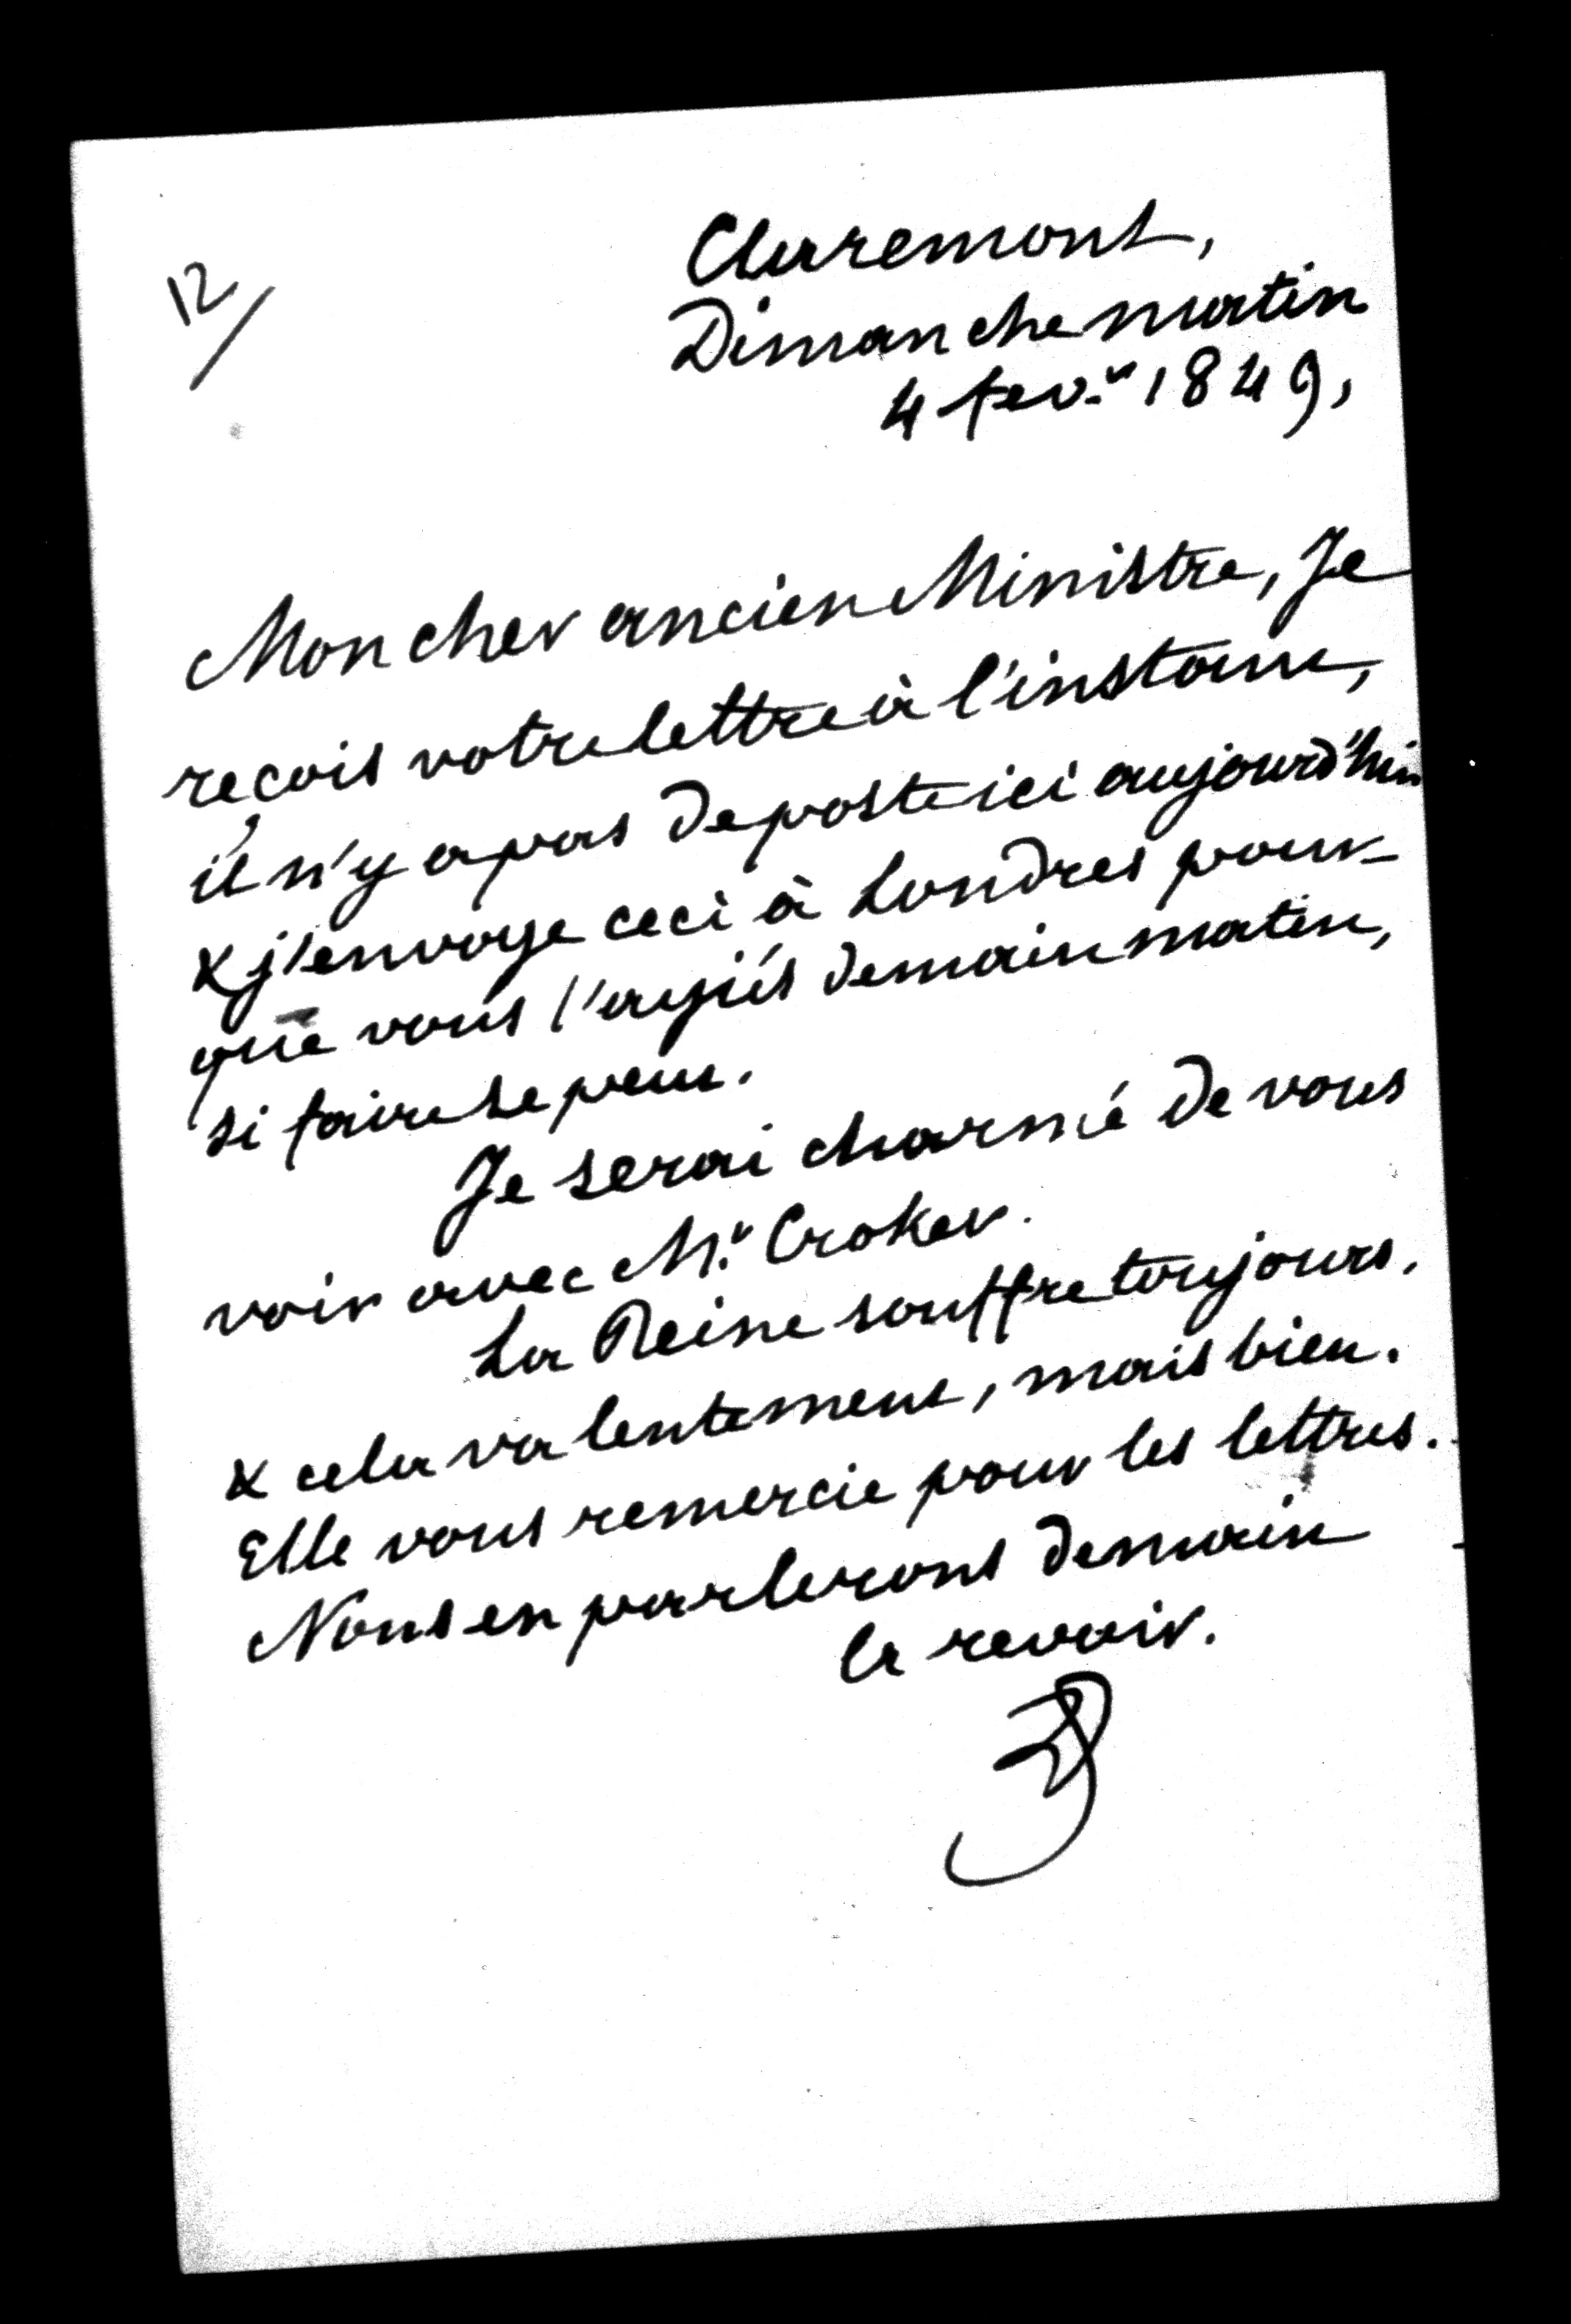 12/
Claremont,
Dimanche matin
4 fev.r 1849,
Mon cher ancien Ministre, Je
reçois votre lettre à l'instant,
il n'y a pas de poste ici aujourd'hui
& j'envoye ceci à Londres pour
que vous l'ayiés demain matin,
si faire se peut.
Je serai charmé de vous
voir avec Mr. Croker.
La Reine souffre toujours,
& cela va lentement, mais bien.
Elle vous remercie pour les lettres.
Nous en parlerons demain
la revoir.